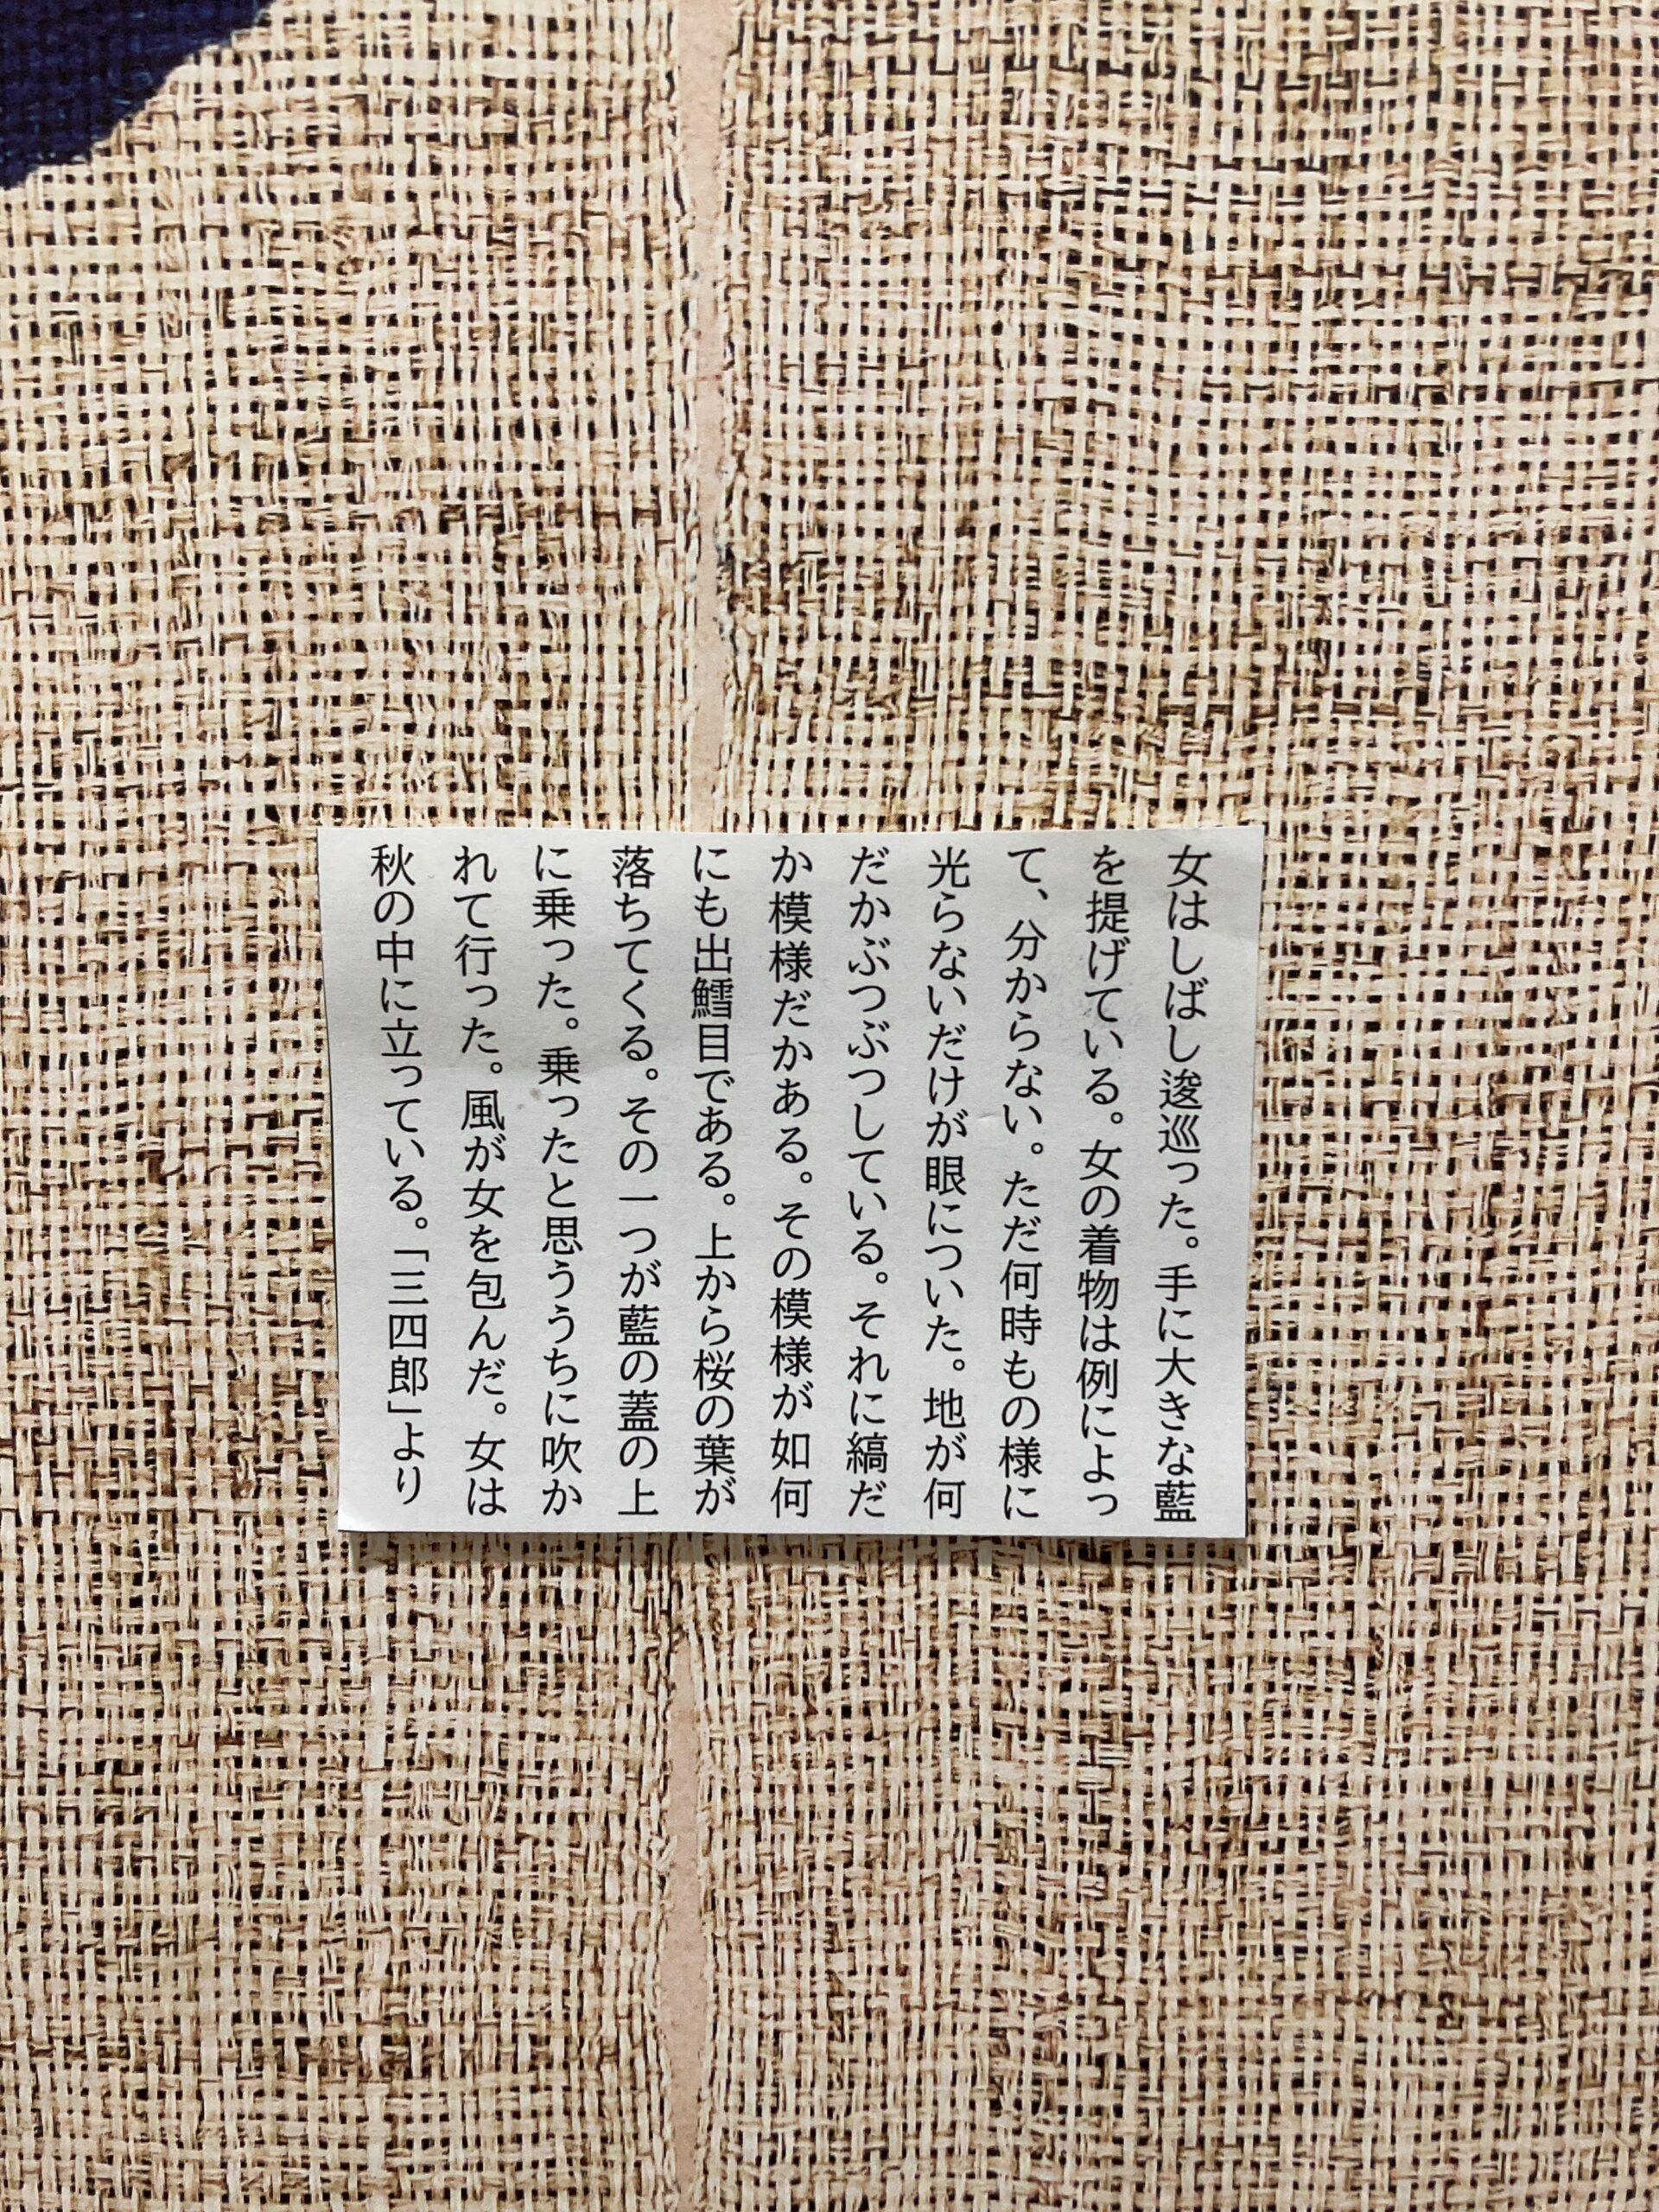 女はしばし逡巡った。手に大きな藍
を提げている。女の着物は例によっ
て、分からない。ただ何時もの様に
光らないだけが眼についた。地が何
だかぶつぶつしている。それに縞だ
か模様だかある。その模様が如何
にも出鱈目である。上から桜の葉が
落ちてくる。その一つが藍の蓋の上
に乗った。乗ったと思ううちに吹か
れて行った。風が女を包んだ。女は
秋の中に立っている。「三四郎」より